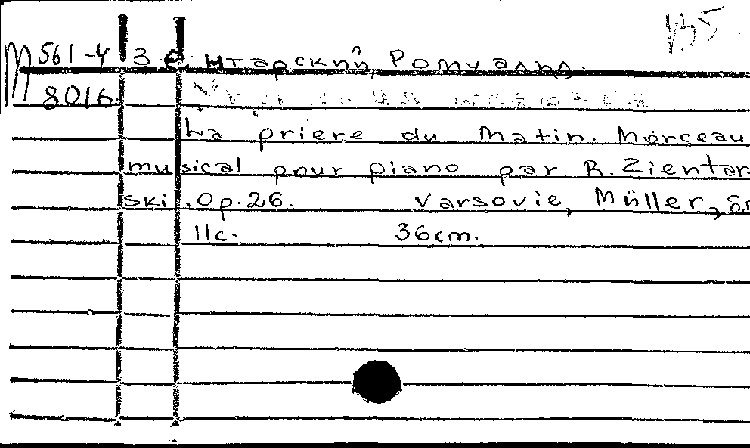 М 561-4 Зентарский, Ромуальд.
8016
La priere du Matin. Morceau
musical pour piano par R. Zientar-
ski. Op. 26. Varsovie, Müller,
11c. 36cm.